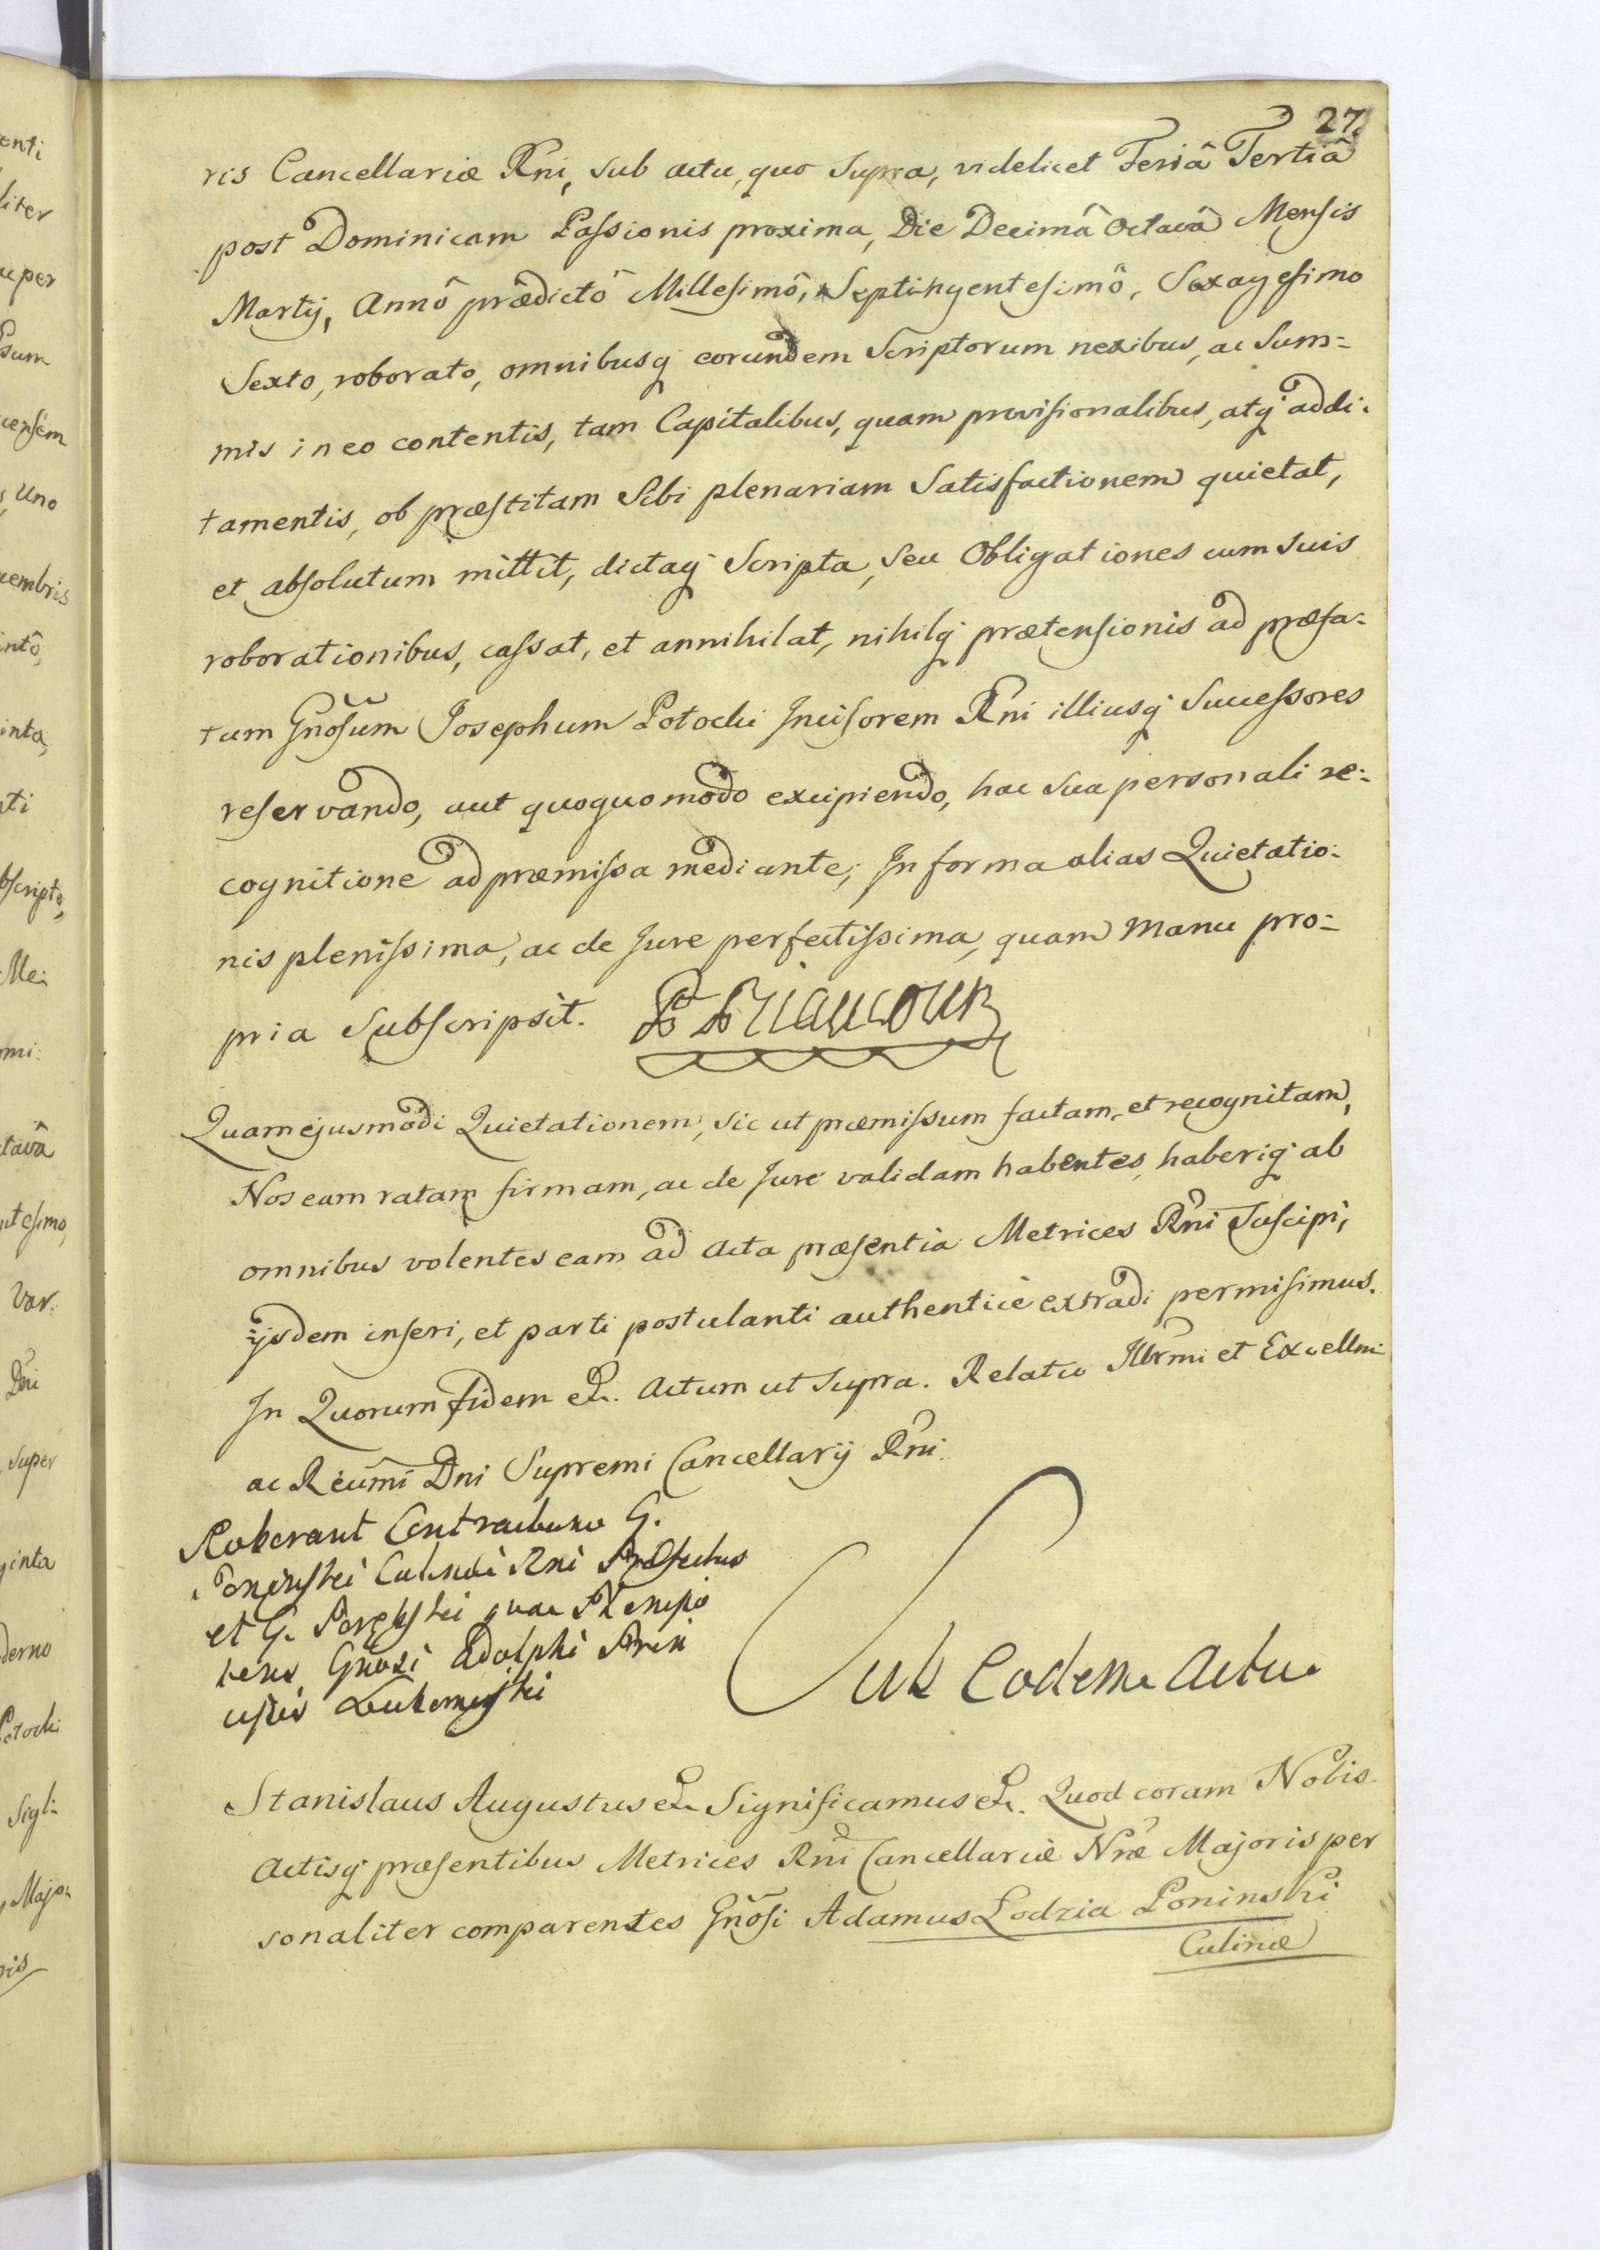 27.
ris Cancellariæ Rni, sub actu, quo supra, videlicet Feriâ Tertiâ
post Dominicam Passionis proxima, Die Decimâ Octavâ Mensis
Martij, Annô prædictô Millesimô, Septingentesimô, Sexagesimo
Sexto, roborato, omnibusq corundem Scriptorum nexibus, ac Sum=
mis in eo contentis, tam Capitalibus, quam provisionalibus, atq addi=
tamentis, ob præstitam Sibi plenariam Satisfactionem quietat,
et absolutum mittit, dictaq Scripta, seu Obligationes cum suis
roborationibus, cassat, et annihilat, nihilq prætensionis ad præfa=
tum Gnõsum Josephum Potocki Incisorem Rni illiusq Successores
reservando, aut quoquomodo excipiendo, hac sua personali re=
cognitione ad præmissa mediante; In forma alias Quietatio=
nis plenissima, ac de Jure perfectissima, quam manu pro=
pria Subscripsit.
Quam ejusmodi Quietationem, sic ut præmissum factam, et recognitam,
Nos eam ratam firmam, ac de Jure validam habentes, haberiq ab
omnibus volentes eam ad Acta præsentia Metrices Rni Suscipi,
ijsdem inseri, et parti postulanti authenticè extradi permisimus.
In Quorum fidem &c. Actum ut supra. Relatio Illrmi et Excellmi
ac Reumi Dni Supremi Cancellarij Rni.
Roborant Contractum G.
Poniński Culinæ Rni Præfectus
et G.
Gnosi Adolphi

Sub Eodem Actu
Stanislaus Augustus &c Significamus &c. Quod coram Nobis
Actisq præsentibus Metrices Rni Cancellariæ Nræ Majoris per
sonaliter comparentes Gnõsi Adamus Lodzia Poninski
Culinæ